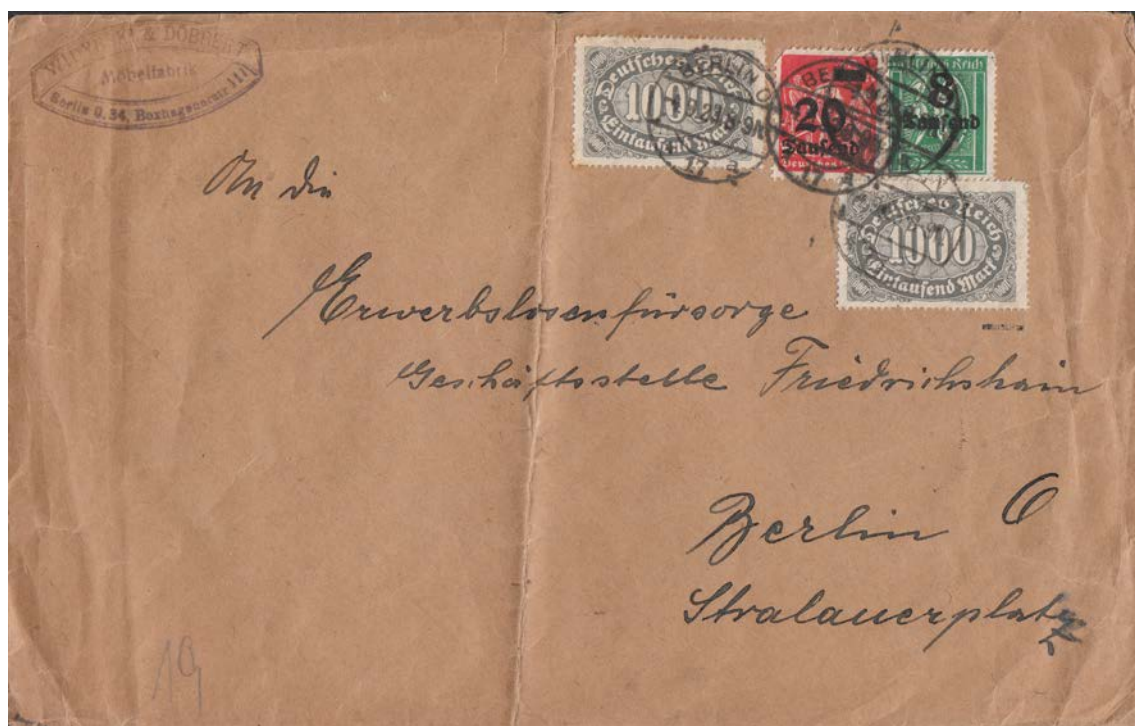 & DOBBERT
Möbelfabrik
Berlin O. 34, Boxhagenerstr. 111
Deutsches Reich
1000
Eintausend Mark
BERLIN O
9.23.8-9N
17 a
20
Tausend
Deutsches Reich
8
Tausend
Deutsches Reich
1000
Eintausend Mark
An die
Erwerbslosenfürsorge
Geschäftsstelle Friedrichshain
Berlin O
Stralauerplatz
19